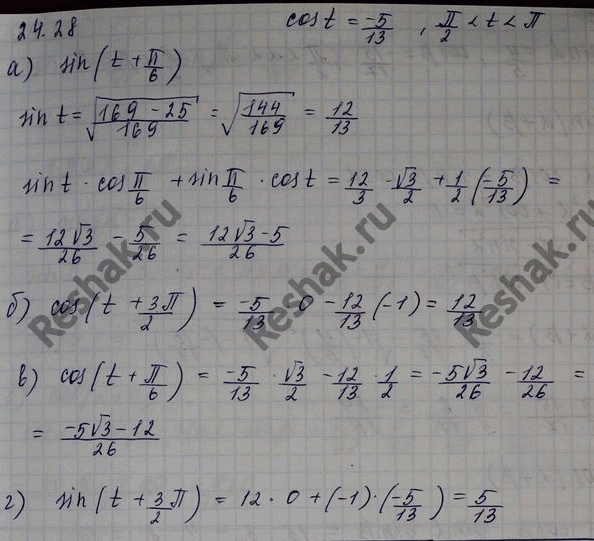 24.28 cos t = -5/13 , π/2 < t < π
а) sin(t + π/6)
sin t = √((169 - 25)/169) = √(144/169) = 12/13
sin t · cos π/6 + sin π/6 · cos t = 12/3 · √3/2 + 1/2 (-5/13) =
= 12√3/26 - 5/26 = (12√3 - 5)/26
б) cos(t + 3π/2) = -5/13 · 0 - 12/13 (-1) = 12/13
в) cos(t + π/6) = -5/13 · √3/2 - 12/13 · 1/2 = -5√3/26 - 12/26 =
= (-5√3 - 12)/26
г) sin(t + 3/2 π) = 12 · 0 + (-1) · (-5/13) = 5/13
Reshak.ru
Reshak.ru
Reshak.ru